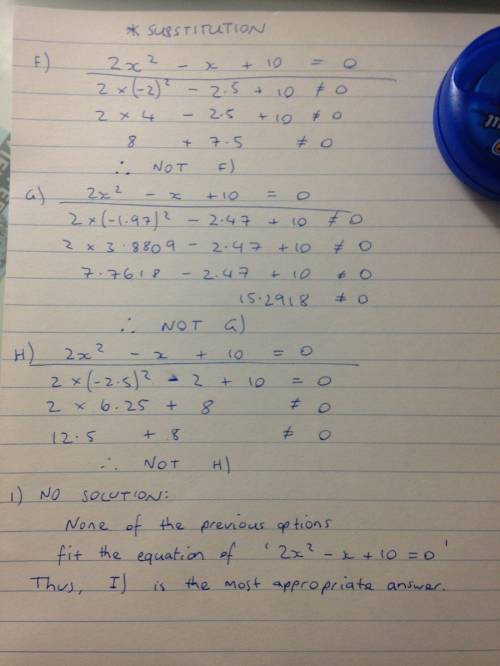 * SUBSTITUTION
F) 2x² - x + 10 = 0
2 × (-2)² - 2.5 + 10 ≠ 0
2 × 4 - 2.5 + 10 ≠ 0
8 + 7.5 ≠ 0
∴ NOT F)
G) 2x² - x + 10 = 0
2 × (-1.97)² - 2.47 + 10 ≠ 0
2 × 3.8809 - 2.47 + 10 ≠ 0
7.7618 - 2.47 + 10 ≠ 0
15.2918 ≠ 0
∴ NOT G)
H) 2x² - x + 10 = 0
2 × (-2.5)² - 2 + 10 = 0
2 × 6.25 + 8 ≠ 0
12.5 + 8 ≠ 0
∴ NOT H)
I) NO SOLUTION:
None of the previous options
fit the equation of '2x² - x + 10 = 0'
Thus, I) is the most appropriate answer.